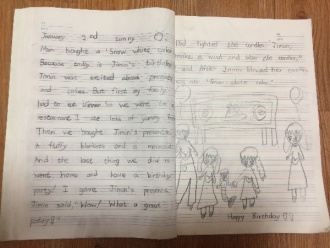 January 2nd sunny
Mom bought a "Snow white cake"
Because today is Jimin's birthday
Jimin was excited about presents
and cakes. But first my family
had to eat dinner. So we went to a
restaurant. I ate lots of yummy
Then we bought Jimin's presents,
a fluffy blankets and a
And the last thing we did is
went home and have a birthday
party! I gave Jimin's presents,
Jimin said, "Wow! What a great
party!!
Dad lighted the candles. Jimin,
make a wish and blow the candles,
And Jimin blowed the candles
"Snow white cake."
Happy Birthday